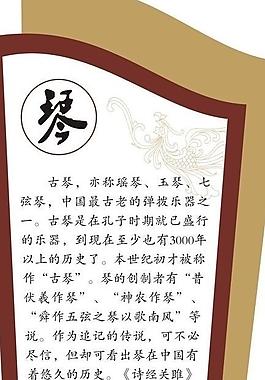 琴
古琴，亦称瑶琴、玉琴、七
弦琴，中国最古老的弹拨乐器之
一。古琴是在孔子时期就已盛行
的乐器，到现在至少也有3000年
以上的历史了。本世纪初才被称
作“古琴”。琴的创制者有“昔
伏羲作琴”、“神农作琴”、
“舜作五弦之琴以歌南风”等
说。作为追记的传说，可不必
尽信，但却可看出琴在中国有
着悠久的历史。《诗经关雎》